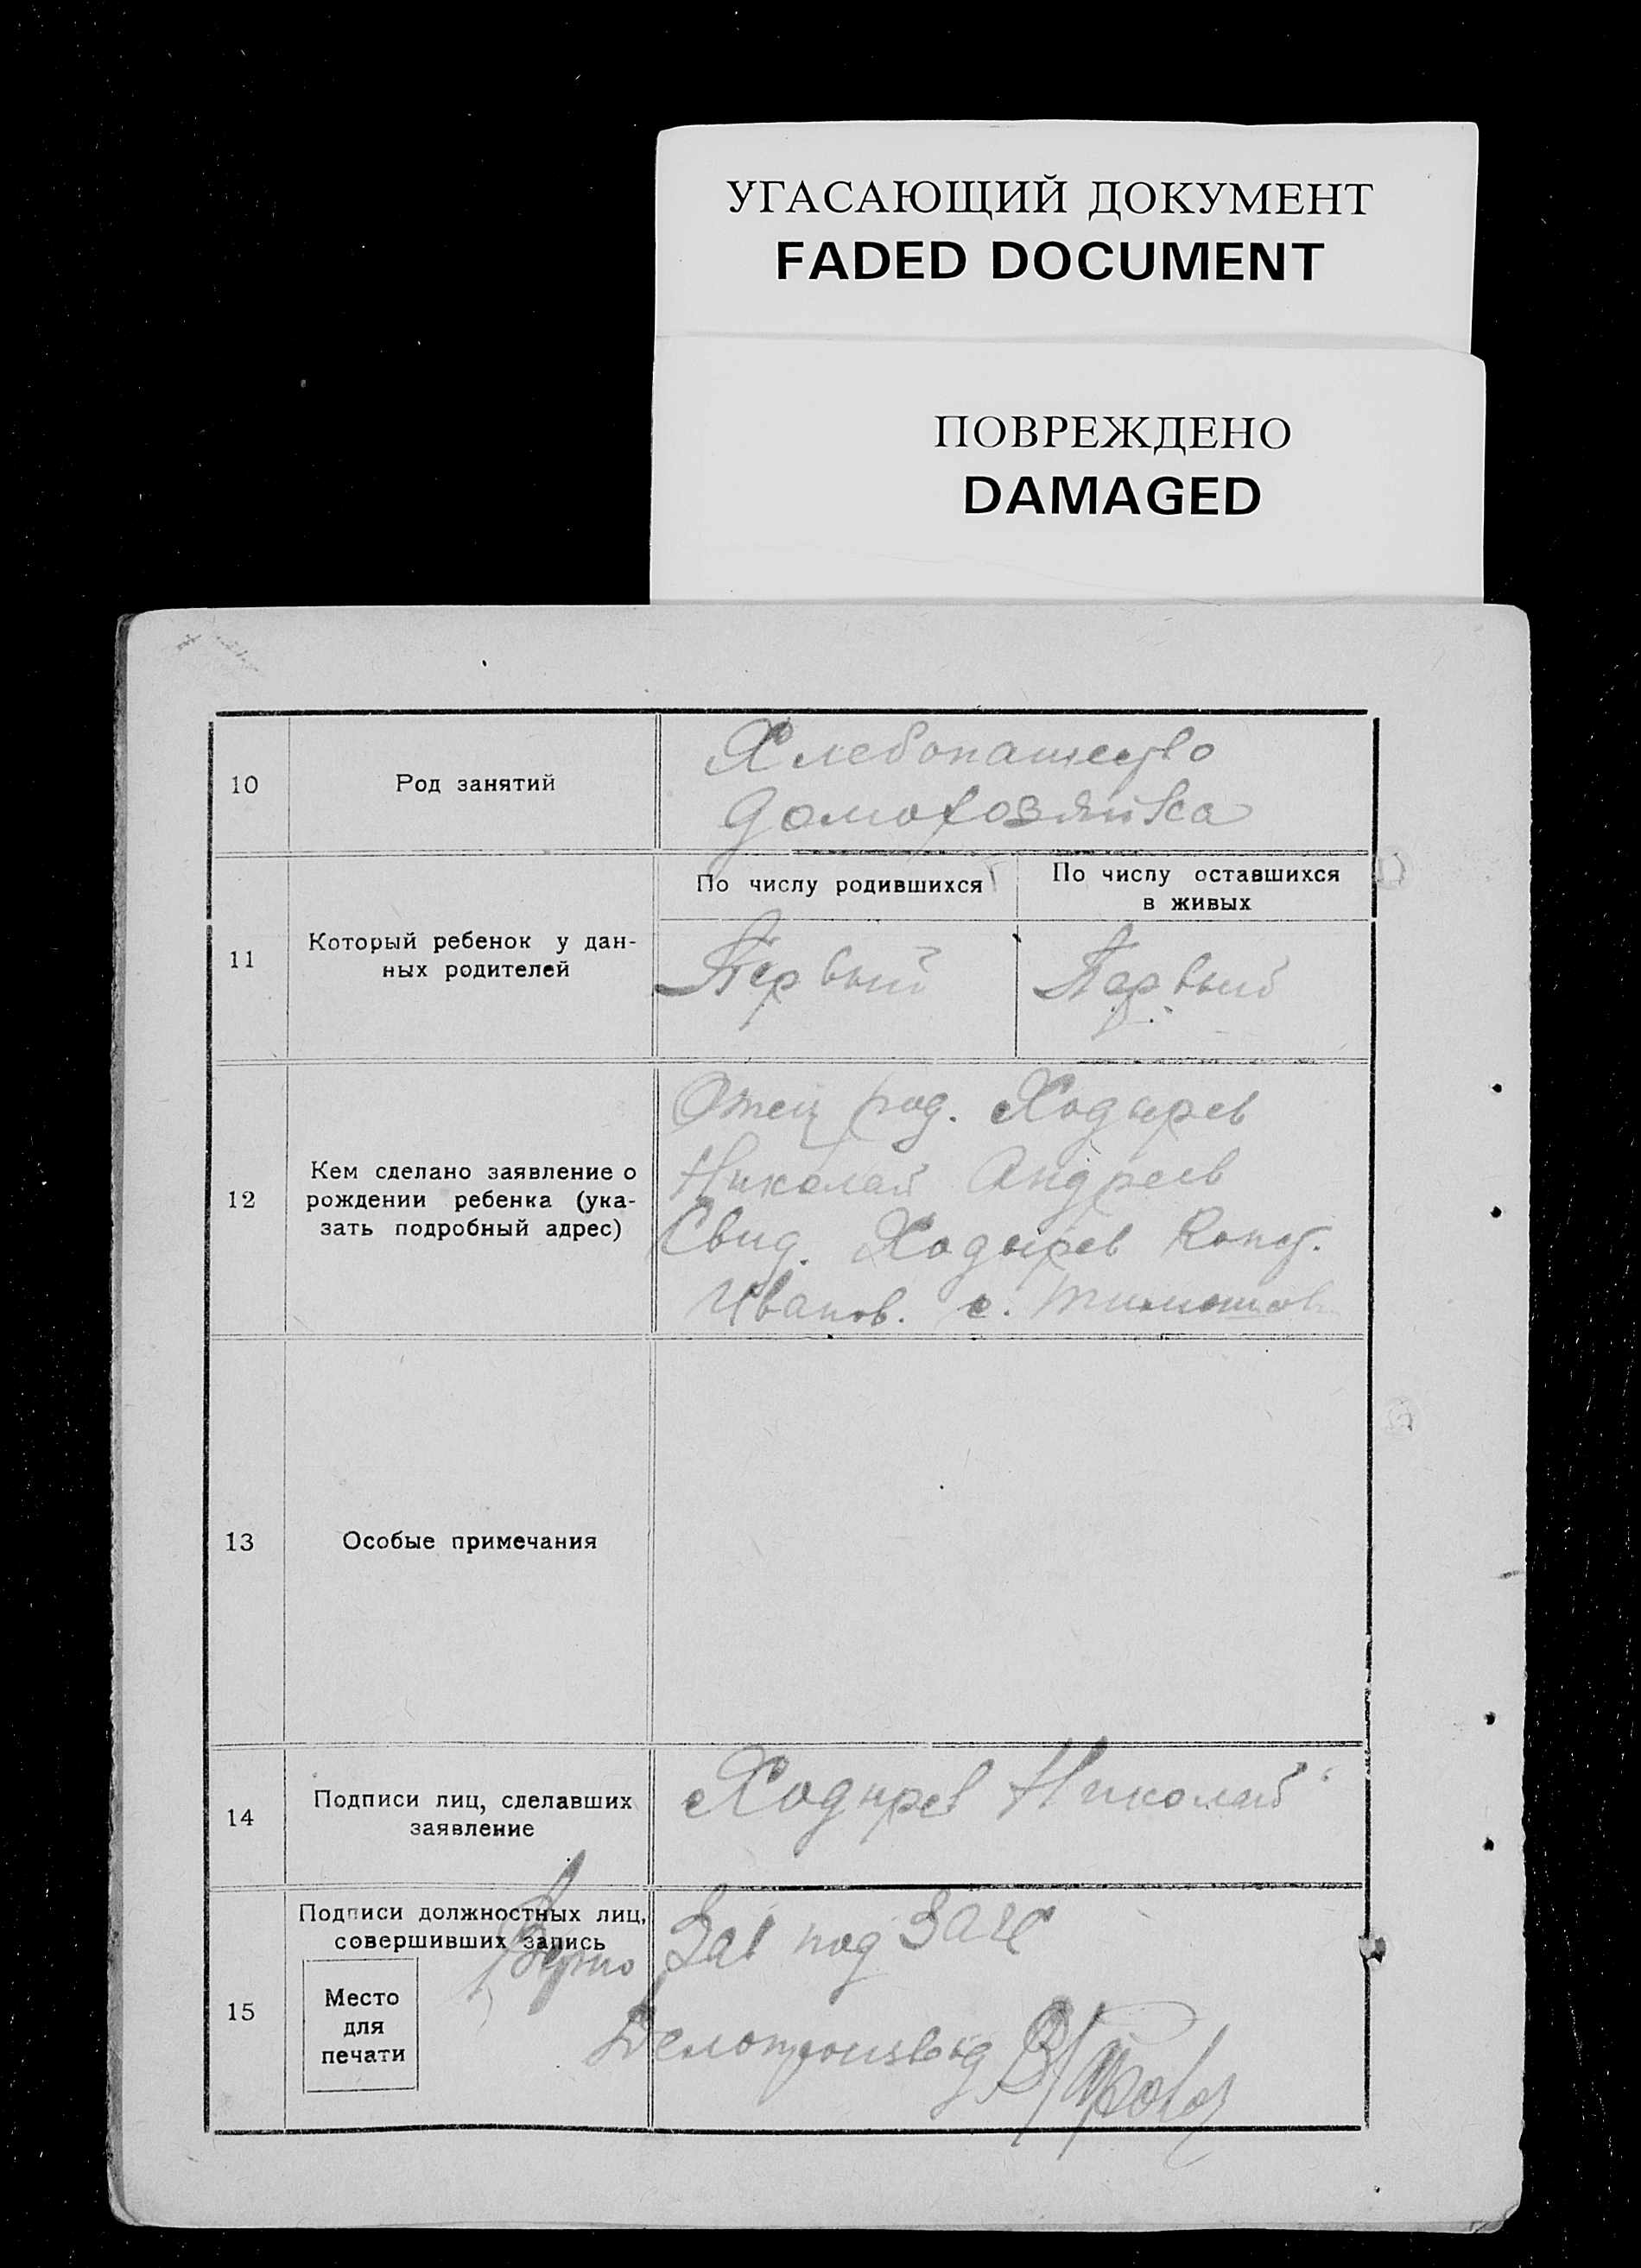 УГАСАЮЩИЙ ДОКУМЕНТ
FADED DOCUMENT
ПОВРЕЖДЕНО
DAMAGED
10
Род занятий
Хлебопашество
Домохозяйка
11
Который ребенок у дан-
ных родителей
По числу родившихся
По числу оставшихся
в живых
Первый
Первый
12
Кем сделано заявление о
рождении ребенка (ука-
зать подробный адрес)
Отец род. Ходырев
Николай Андреев
Свид. Ходырев Конст.
Иванов. с.
13
Особые примечания
14
Подписи лиц, сделавших
заявление
Ходырев Николай
15
Подписи должностных лиц,
совершивших запись
Место
для
печати
Верно
Зав под ЗАГС
Делопроизвод